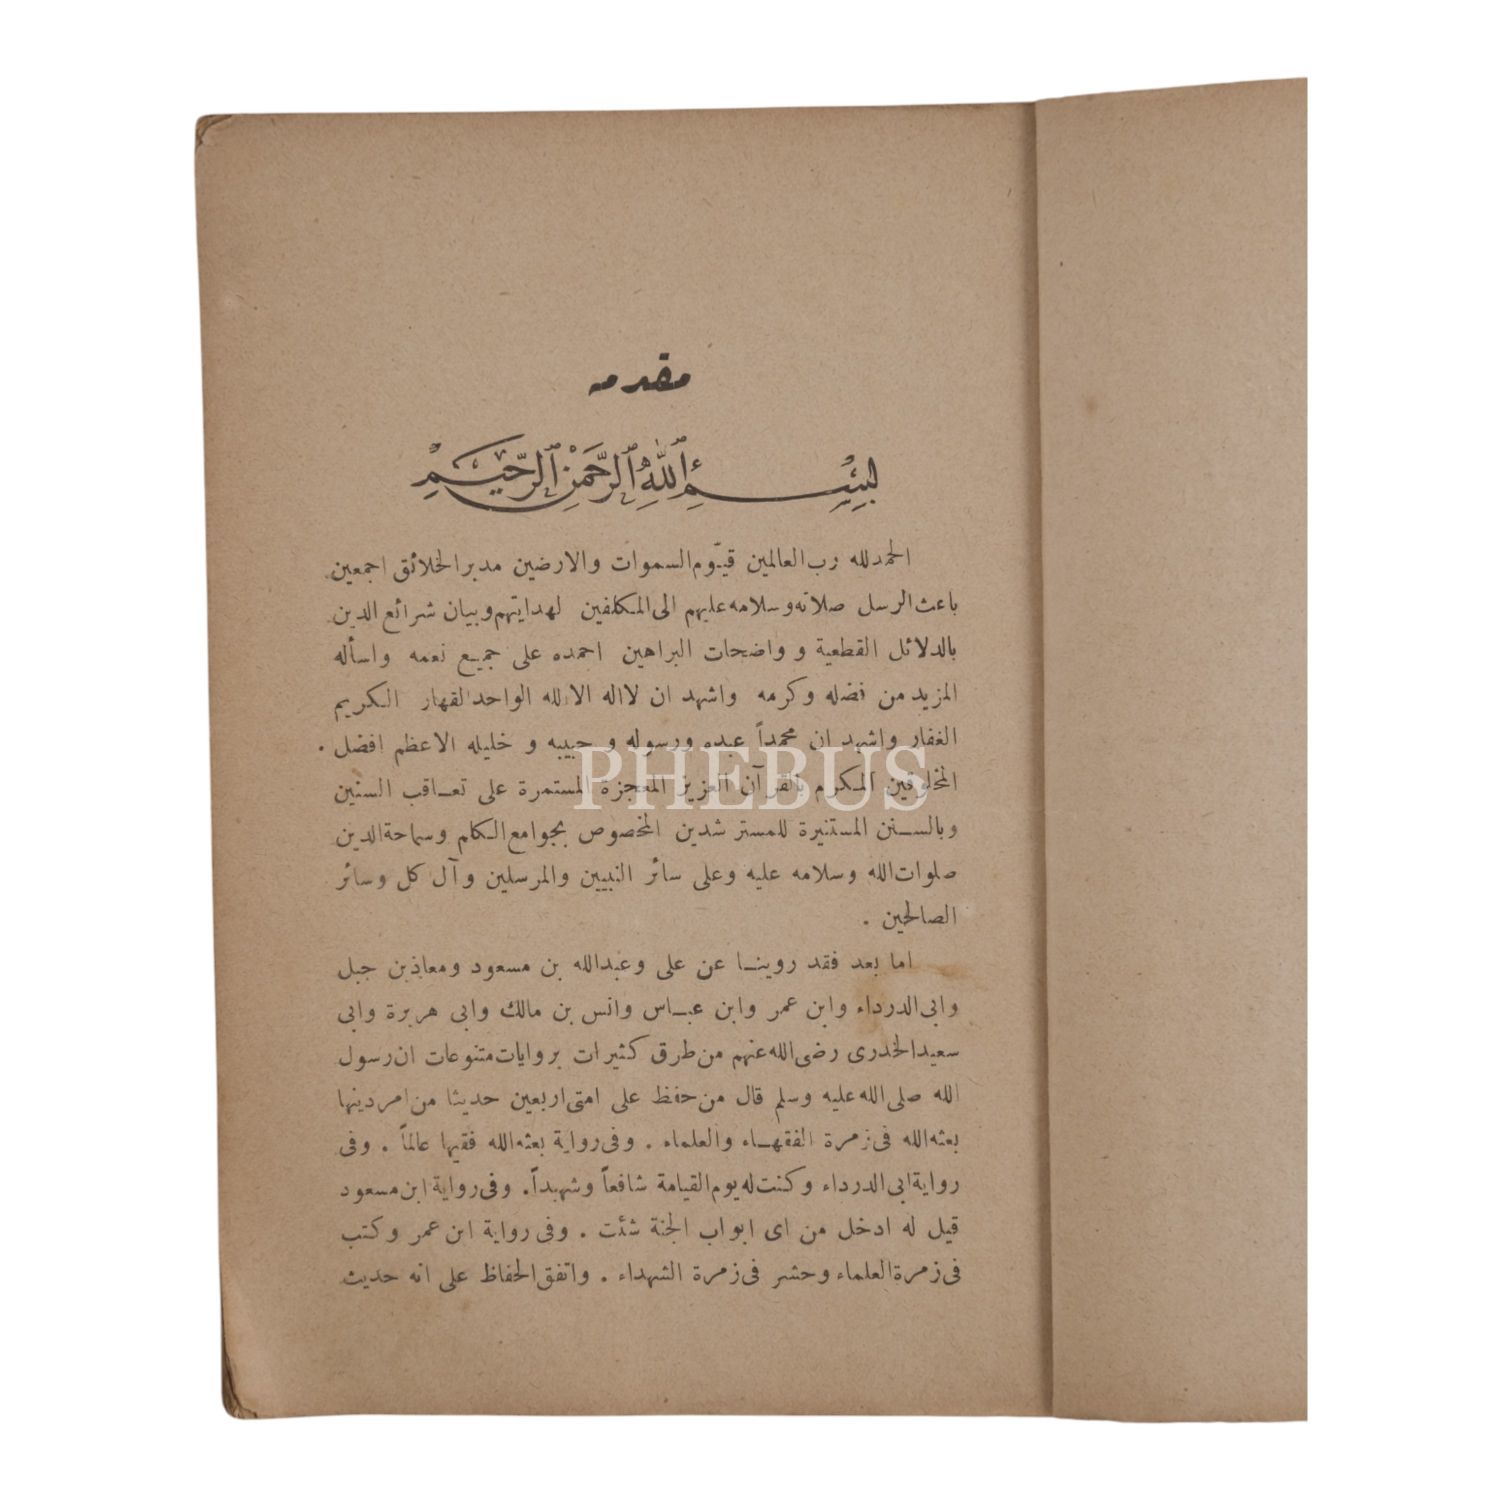 مقدمه
بِسْمِ ٱللَّهِ ٱلرَّحْمَٰنِ ٱلرَّحِيمِ
الحمدلله رب العالمين قيّوم السموات والارضين مدبر الخلائق اجمعين
باعث الرسل صلاته وسلامه عليهم الى المكلفين لهدايتهم وبيان شرائع الدين
بالدلائل القطعية و واضحات البراهين احمده على جميع نعمه واسأله
المزيد من فضله وكرمه واشهد ان لااله الا الله الواحد القهار الكريم
الغفار واشهد ان محمداً عبده ورسوله و حبيبه و خليله الاعظم افضل .
المخلوقين المكرم بالقرآن العزيز المعجزة المستمرة على تعاقب السنين
وبالسنن المستنيرة للمستر شدين المخصوص بجوامع الكلم وسماحة الدين
صلوات الله وسلامه عليه وعلى سائر النبيين والمرسلين وآل كل وسائر
الصالحين .
اما بعد فقد روينا عن على وعبدالله بن مسعود ومعاذ بن جبل
وابى الدرداء وابن عمر وابن عباس وانس بن مالك وابى هريرة وابى
سعيد الخدرى رضى الله عنهم من طرق كثيرات بروايات متنوعات ان رسول
الله صلى الله عليه وسلم قال من حفظ على امتى اربعين حديثا من امر دينها
بعثه الله فى زمرة الفقهاء والعلماء . وفى رواية بعثه الله فقيها عالماً . وفى
رواية ابى الدرداء وكنت له يوم القيامة شافعاً وشهيداً. وفى رواية ابن مسعود
قيل له ادخل من اى ابواب الجنة شئت . وفى رواية ابن عمر وكتب
فى زمرة العلماء وحشر فى زمرة الشهداء . واتفق الحفاظ على انه حديث
PHEBUS